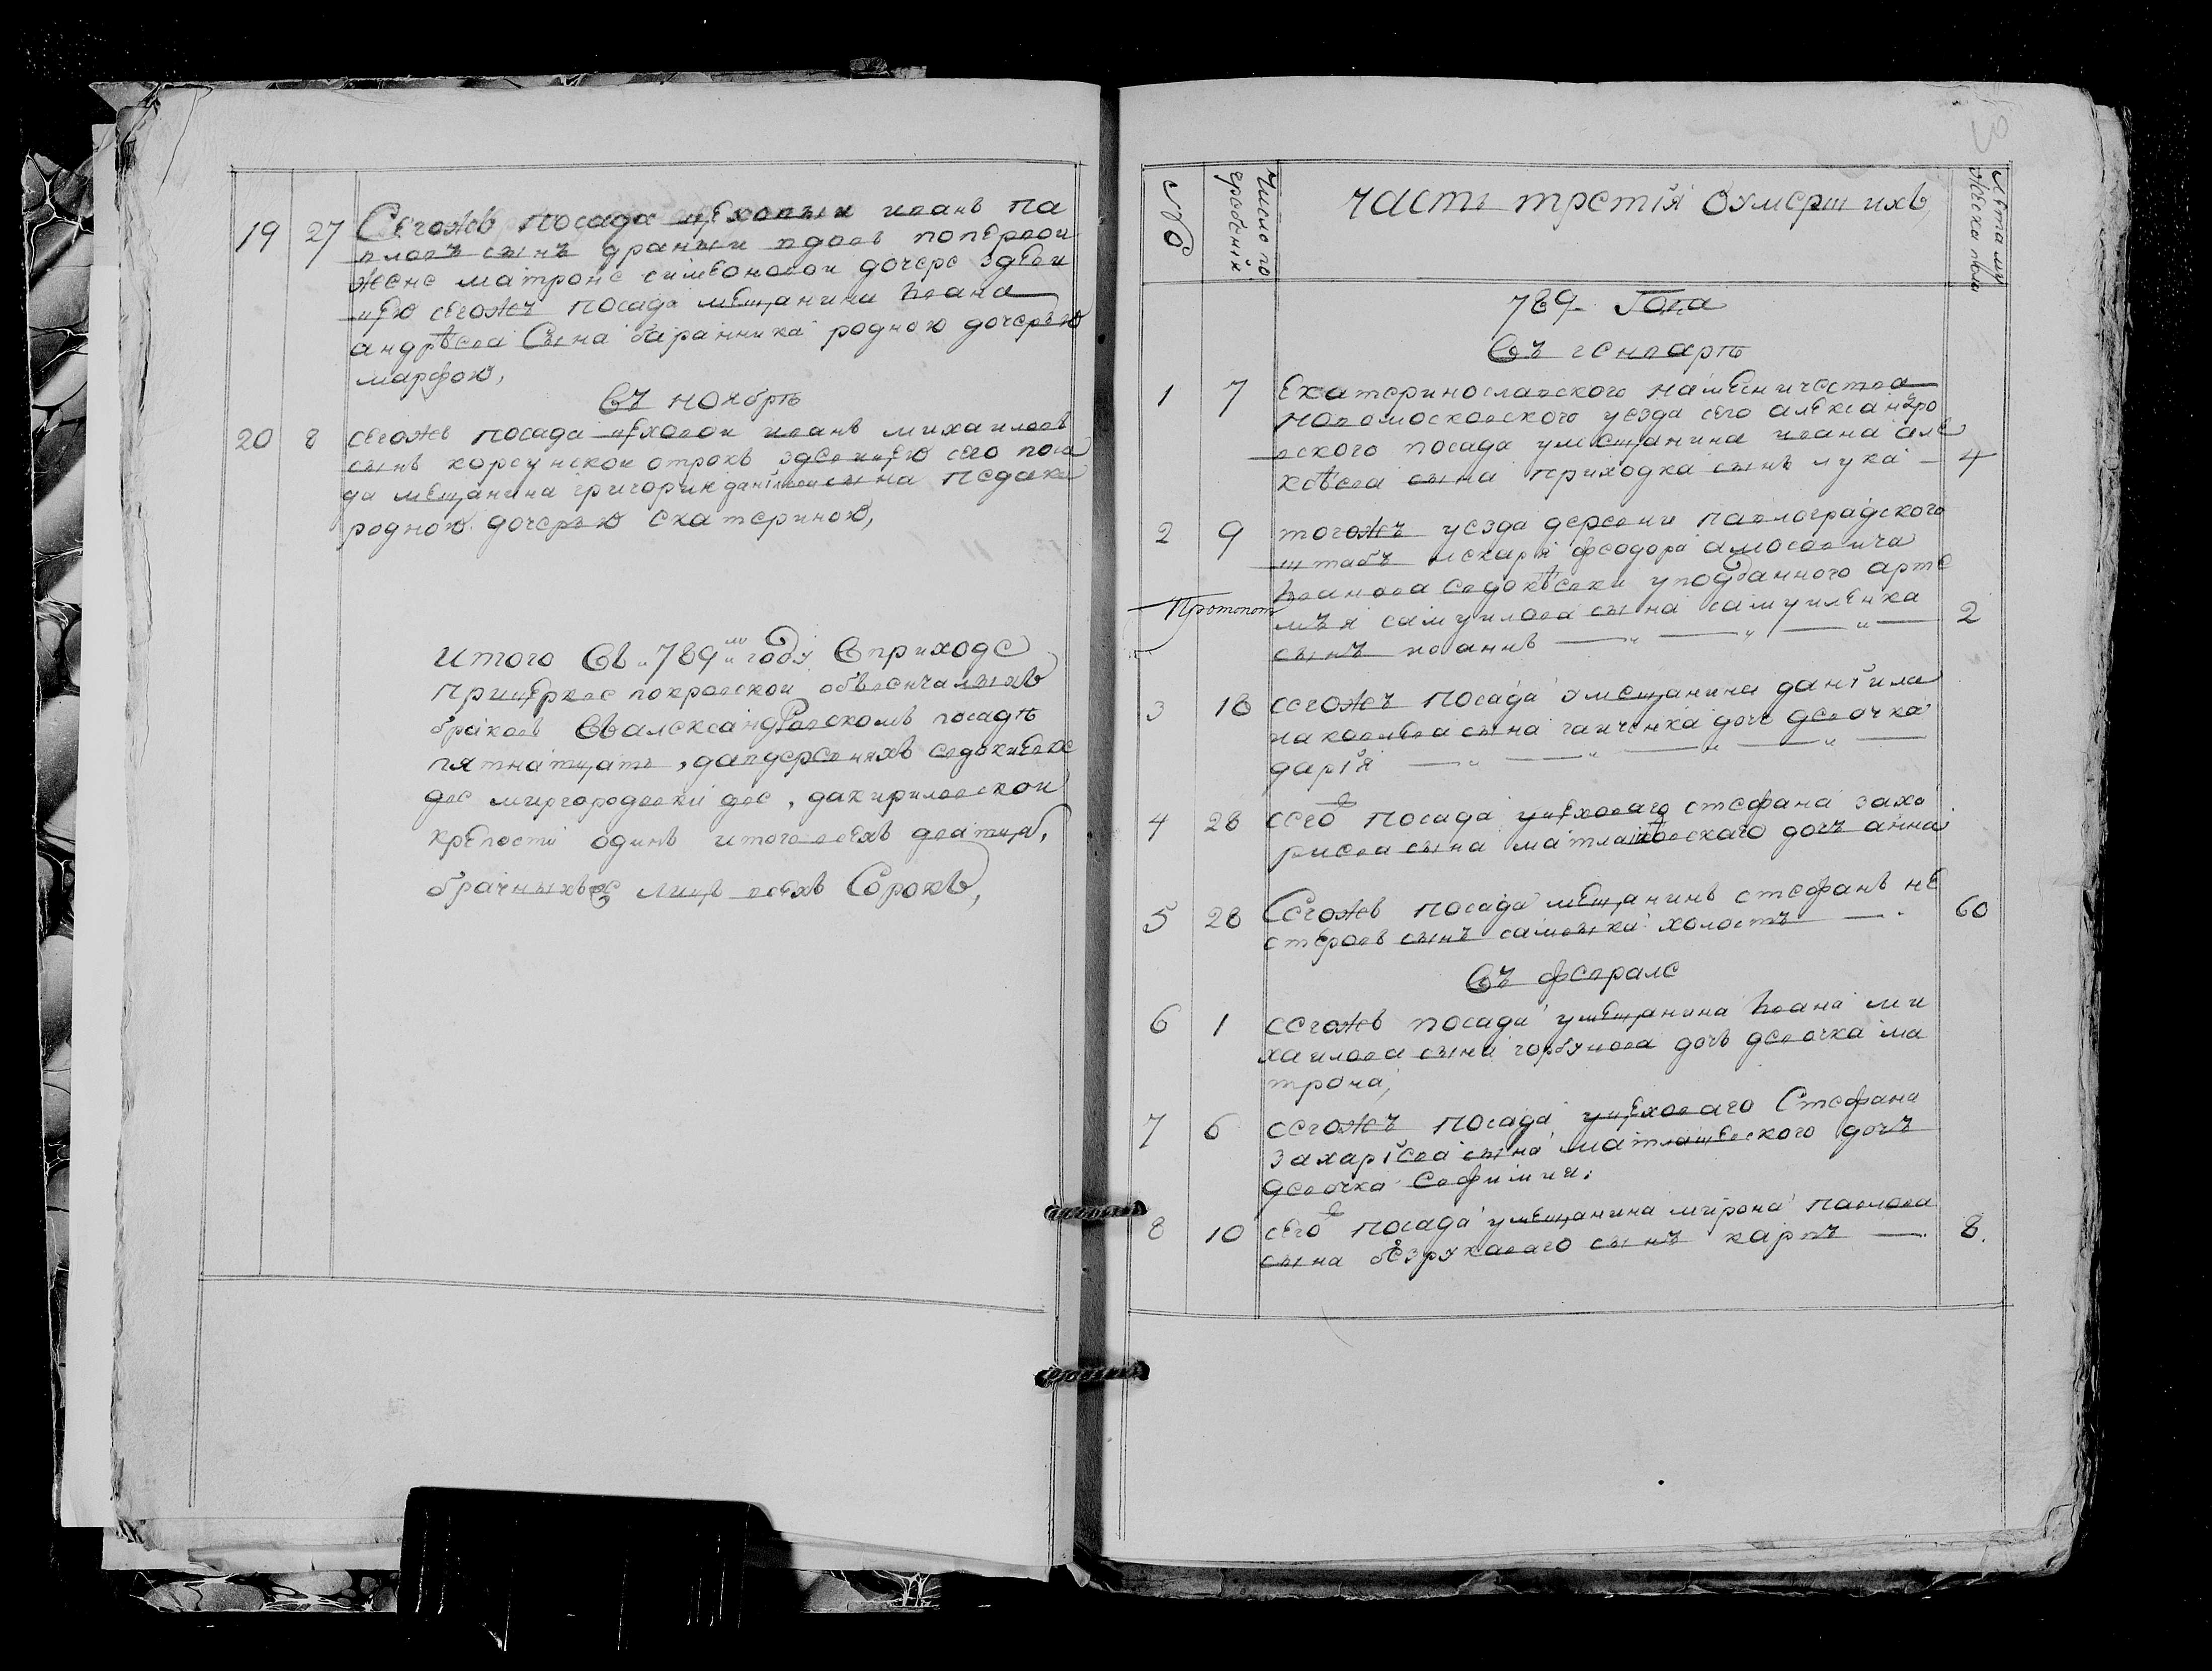 19 27 Сегожъ посада цеховыи иванъ па
вловъ сынъ драныи вдовъ попервои
жене матроне симеоновои дочере здеви
цею сегожъ посада мещанина іоанна
андрѣева Сына баранника родною дочерью
марфою,
Въ ноябрѣ
20 8 сегожъ посада цеховои иванъ михаиловъ
сынъ корсунскои отрокъ здевицею сего поса
да мещанина григория данїилови сына педака
родною дочерью екатериною,
итого Въ 789мъ году Вприходе
прицеркве покровскои обвенчалныхъ
браковъ Въалександровскомъ посадѣ
пятнатцать, давдеревняхъ евдокиевке
две миргородовки две, дакириловскои
крепости одинъ итого всехъ дватцать,
брачныхъже лицъ всехъ Сорокъ,
№ Число погребения часть третїя оумершихъ Лета мужеска полу
789 Года
Въ генварѣ
1 7 екатеринославского намесничества
новомосковского уезда сего александро
вского посада умещанина ивана але
ксѣева сына приходка сынъ лука 4
2 9 тогожъ уезда деревни павлоградского
штабъ лекаря феодора амосовича
іванова евдокѣевки уподданного арте
Протопоп
мъя самуилова сына самуиленка
сынъ иоаннъ 2
3 18 сегожъ посада умещанина данїила
иаковлева сына ганченка дочь девочка
дарїя
4 28 сегоже посада уцеховаго стефана заха
риева сына матлашевскаго дочь анна
5 28 Сегожъ посада мещанинъ стефанъ не
стеровъ сынъ самоыка холостъ 60
Въ феврале
6 1 сегожъ посада умещанина іоана ми
хаилова сына горбунова дочь девочка ма
трона,
7 6 сегожъ посада уцеховаго Стефана
захарїева сына матлашевского дочъ
девочка евфимия:
8 10 сегоже посада умещанина мирона павлова
сына безрукаваго сынъ карпъ 8.